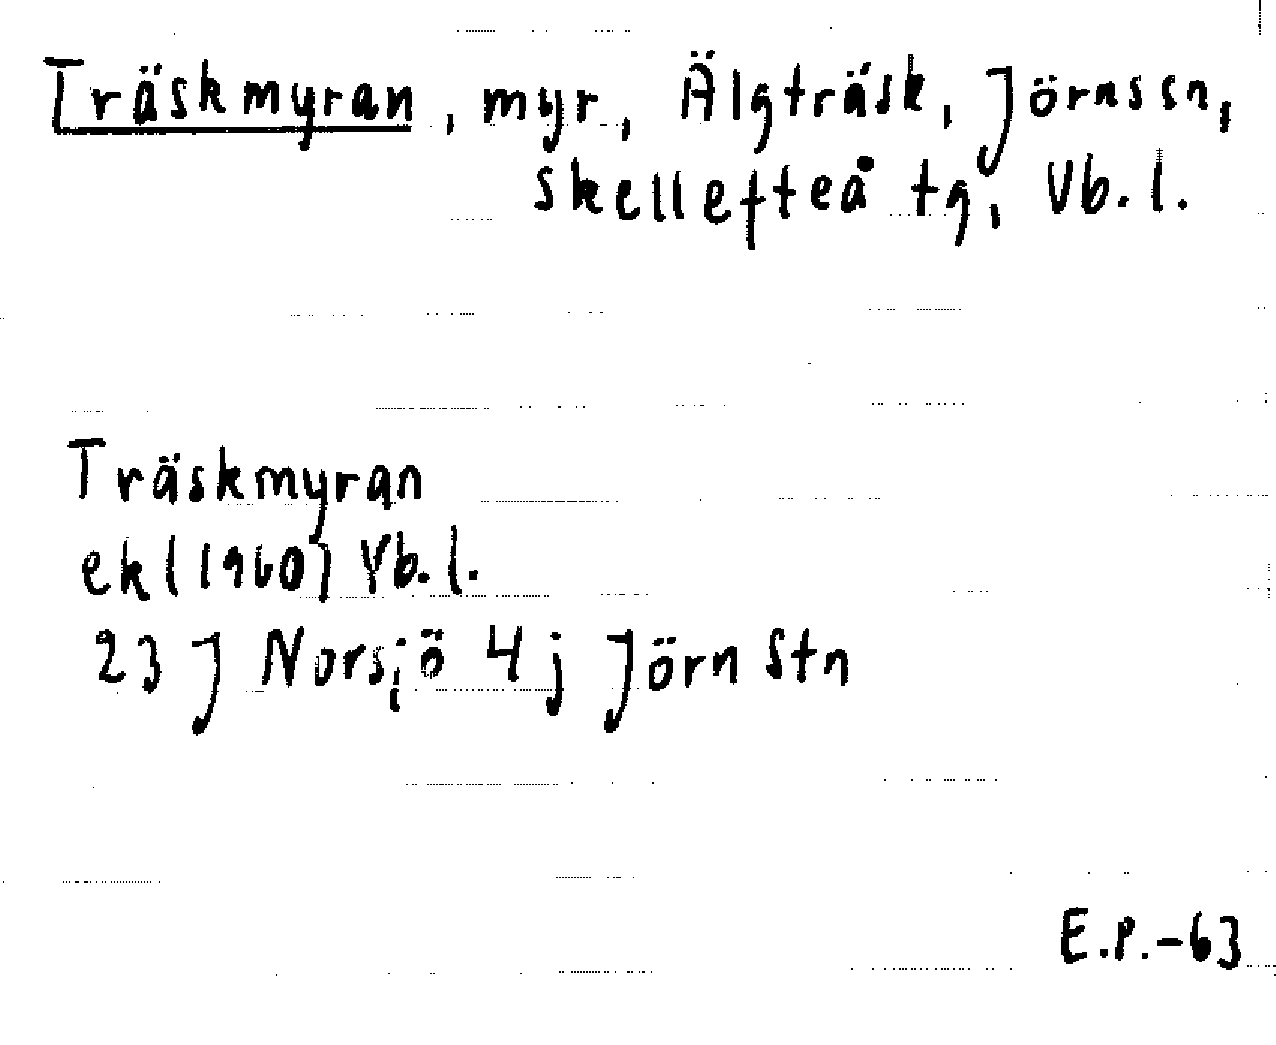 Träskmyran, myr, Älgträsk, Jörns sn,
Skellefteå tg, Vb. l.
Träskmyran
ek (1960) Vb. l.
23 J Norsjö 4 j Jörn Stn
E.P.-63